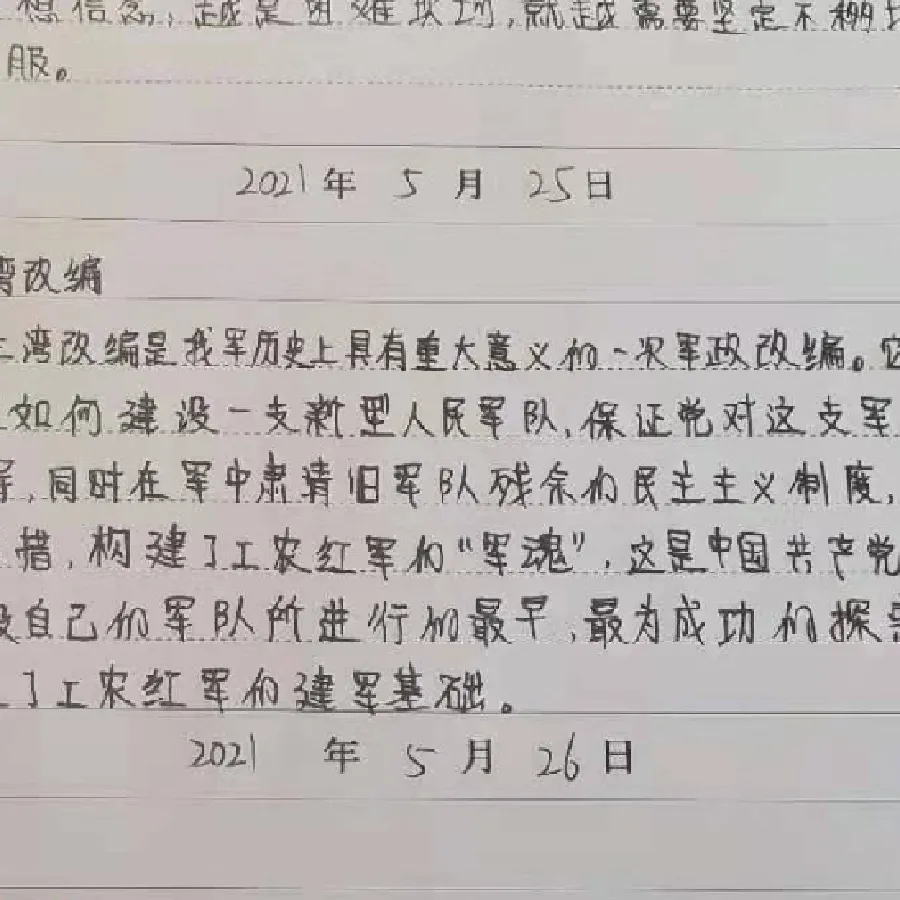 想信念，越是困难坎坷，就越需要坚定不
服。
2021年 5 月 25日
湾改编
湾改编是我军历史上具有重大意义的一次军政改编。它
如何建设一支新型人民军队，保证党对这支军
，同时在军中肃清旧军队残余的民主主义制度，
措，构建了工农红军的“军魂”，这是中国共产党
自己的军队所进行的最早，最为成功的探索
了工农红军的建军基础。
2021 年 5 月 26日